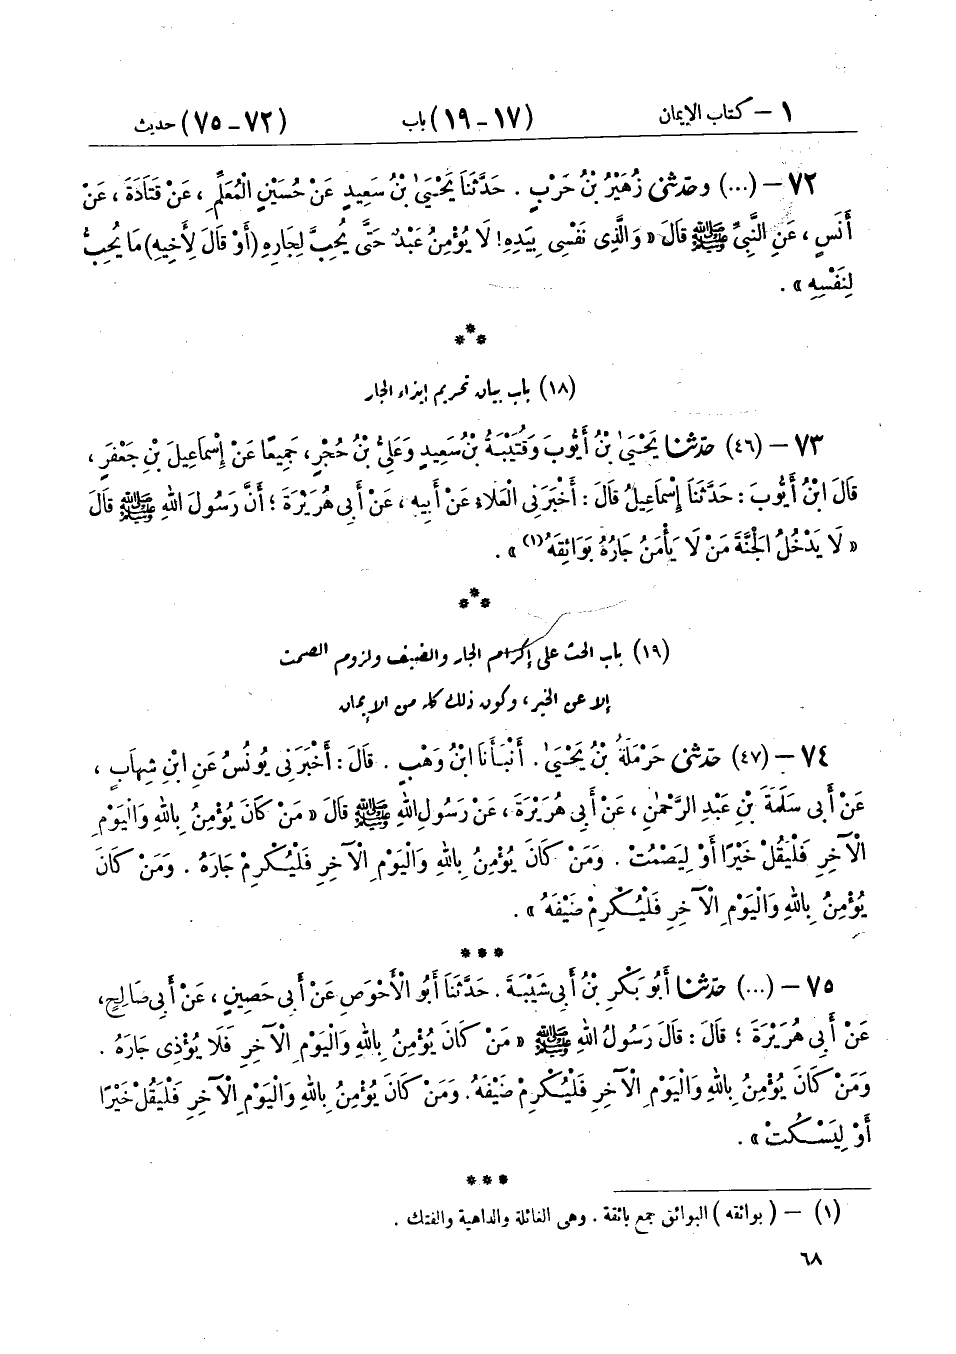 ١ – كتاب الإيمان (١٧ – ١٩) باب (٧٢ – ٧٥) حديث
٧٢ – (...) وحدثني زُهَيْرُ بْنُ حَرْبٍ . حَدَّثَنَا يَحْيَىٰ بْنُ سَعِيدٍ عَنْ حُسَيْنٍ الْمُعَلِّمِ ، عَنْ قَتَادَةَ ، عَنْ
أَنَسٍ ، عَنِ النَّبِيِّ ﷺ قَالَ « وَالَّذِى نَفْسِى بِيَدِهِ! لَا يُؤْمِنُ عَبْدٌ حَتَّى يُحِبَّ لِجَارِهِ (أَوْ قَالَ لِأَخِيهِ) مَا يُحِبُّ
لِنَفْسِهِ » .
***
(١٨) باب بيان تحريم إيذاء الجار
٧٣ – (٤٦) حدثنا يَحْيَىٰ بْنُ أَيُّوبَ وَقُتَيْبَةُ بْنُ سَعِيدٍ وَعَلِيُّ بْنُ حُجْرٍ، جَمِيعًا عَنْ إِسْمَاعِيلَ بْنِ جَعْفَرٍ ،
قَالَ ابْنُ أَيُّوبَ : حَدَّثَنَا إِسْمَاعِيلُ قَالَ : أَخْبَرَنِى الْعَلَاءِ عَنْ أَبِيهِ ، عَنْ أَبِى هُرَيْرَةَ ؛ أَنَّ رَسُولَ اللهِ ﷺ قَالَ
« لَا يَدْخُلُ الْجَنَّةَ مَنْ لَا يَأْمَنُ جَارُهُ بَوَائِقَهُ(١) » .
***
(١٩) باب الحث على إكرام الجار والضيف ولزوم الصمت
إلا عن الخير ، وكون ذلك كله من الإيمان
٧٤ – (٤٧) حدثني حَرْمَلَةُ بْنُ يَحْيَىٰ . أَنْبَأَنَا ابْنُ وَهْبٍ . قَالَ : أَخْبَرَنِى يُونُسُ عَنِ ابْنِ شِهَابٍ ،
عَنْ أَبِى سَلَمَةَ بْنِ عَبْدِ الرَّحْمٰنِ ، عَنْ أَبِى هُرَيْرَةَ ، عَنْ رَسُولِ اللهِ ﷺ قَالَ « مَنْ كَانَ يُؤْمِنُ بِاللهِ وَالْيَوْمِ
الْآخِرِ فَلْيَقُلْ خَيْرًا أَوْ لِيَصْمُتْ . وَمَنْ كَانَ يُؤْمِنُ بِاللهِ وَالْيَوْمِ الْآخِرِ فَلْيُكْرِمْ جَارَهُ . وَمَنْ كَانَ
يُؤْمِنُ بِاللهِ وَالْيَوْمِ الْآخِرِ فَلْيُكْرِمْ ضَيْفَهُ » .
***
٧٥ – (...) حدثنا أَبُو بَكْرِ بْنُ أَبِى شَيْبَةَ . حَدَّثَنَا أَبُو الْأَحْوَصِ عَنْ أَبِى حَصِينٍ ، عَنْ أَبِى صَالِحٍ،
عَنْ أَبِى هُرَيْرَةَ ؛ قَالَ : قَالَ رَسُولُ اللهِ ﷺ « مَنْ كَانَ يُؤْمِنُ بِاللهِ وَالْيَوْمِ الْآخِرِ فَلَا يُؤْذِى جَارَهُ .
وَمَنْ كَانَ يُؤْمِنُ بِاللهِ وَالْيَوْمِ الْآخِرِ فَلْيُكْرِمْ ضَيْفَهُ . وَمَنْ كَانَ يُؤْمِنُ بِاللهِ وَالْيَوْمِ الْآخِرِ فَلْيَقُلْ خَيْرًا
أَوْ لِيَسْكُتْ » .
***
(١) – ( بوائقه ) البوائق جمع بائقة . وهى الغائلة والداهية والفتك .
٦٨